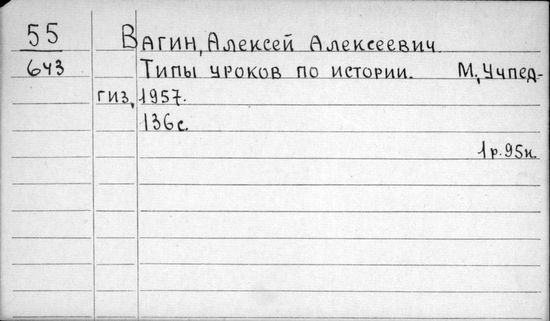 55 Вагин, Алексей Алексеевич.
643 Типы уроков по истории. М, Учпед-
гиз, 1957.
136с.
1р.95к.